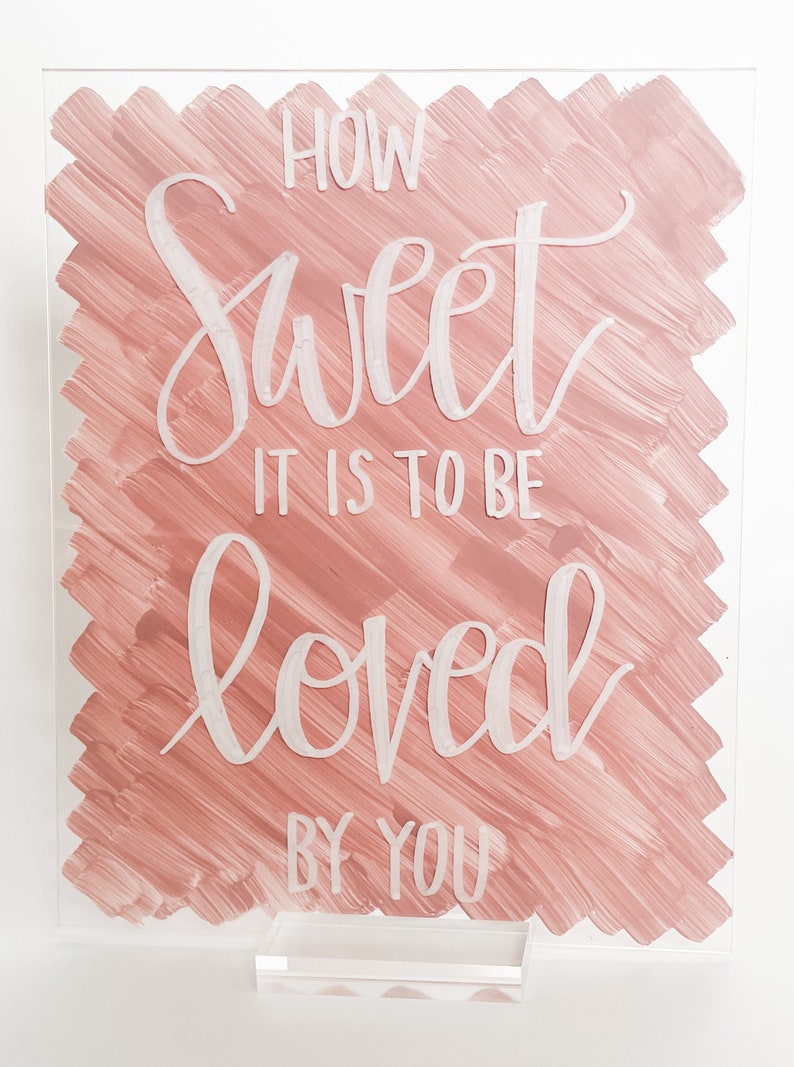 HOW
Sweet
IT IS TO BE
loved
BY YOU